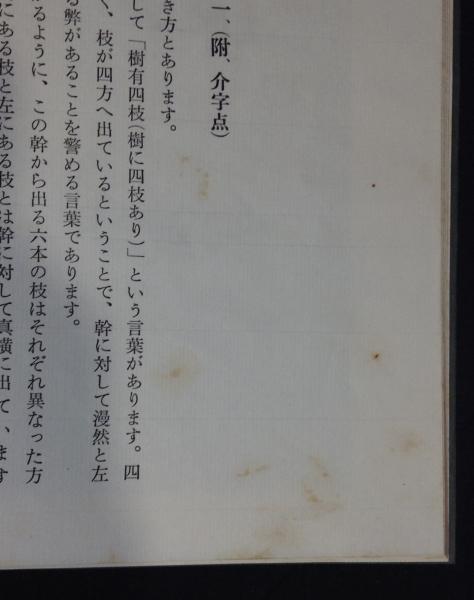 一、(附、介字点)
き方とあります。
して「樹有四枝(樹に四枝あり)」という言葉があります。四
く、枝が四方へ出ているということで、幹に対して漫然と左
る弊があることを警める言葉であります。
るように、この幹から出る六本の枝はそれぞれ異なった方
にある枝と左にある枝とは幹に対して真横に出て、ます